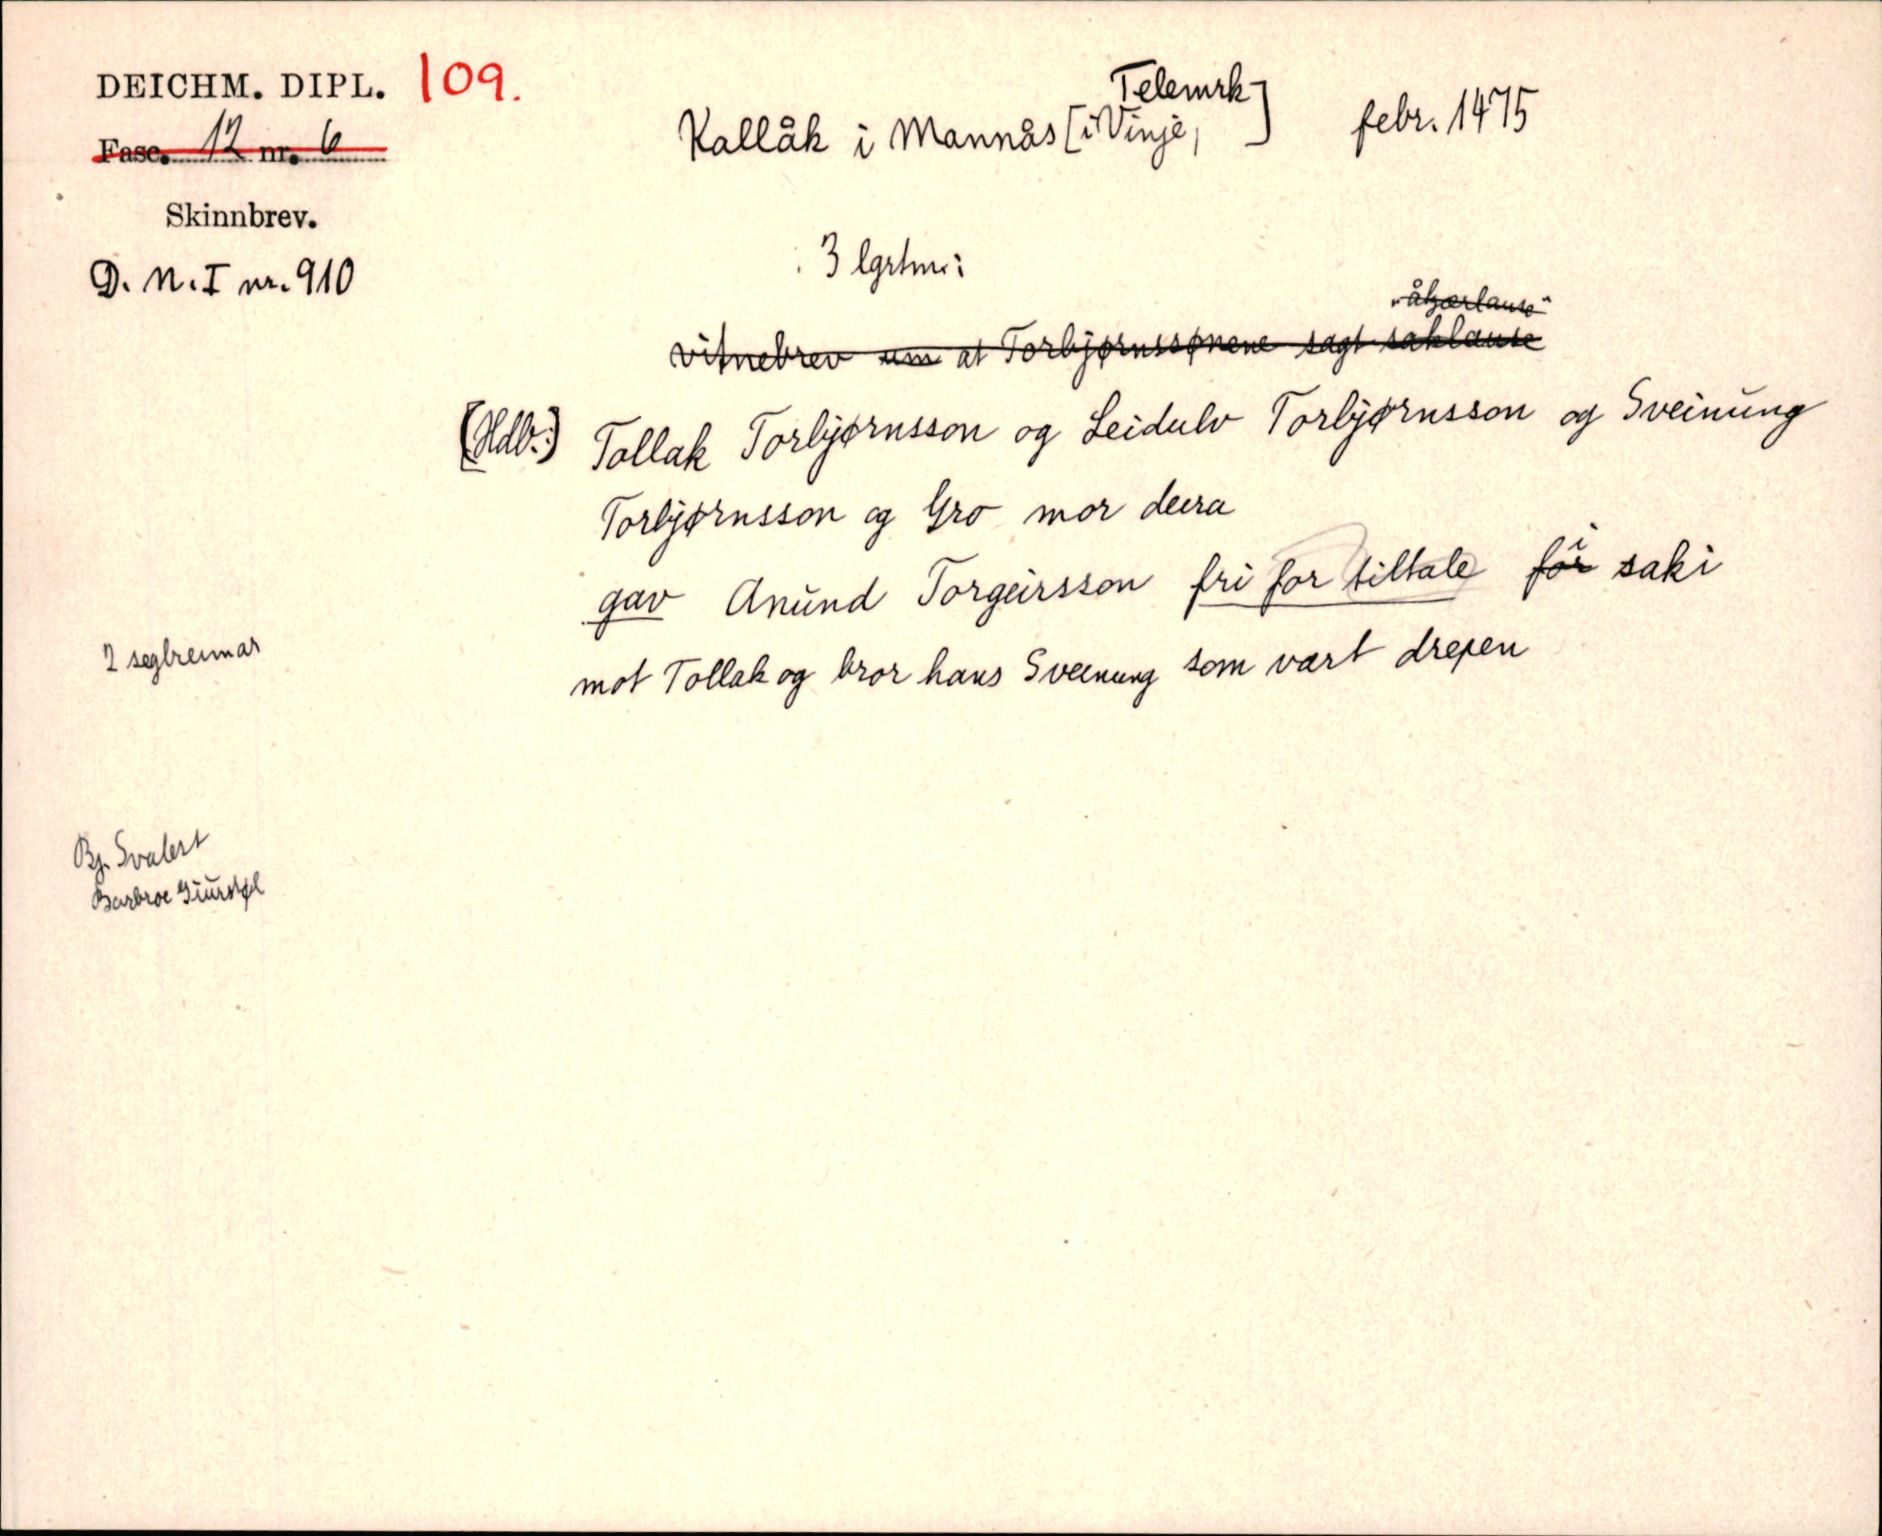 DEICHM. DIPL. 109.
Fasc. 12 nr. 6
Skinnbrev.
D. N. I nr. 910
Telemrk
Kallåk i Mannås [i Vinje, ] febr. 1475
3 lgrtm:
"åkærlause"
vitnebrev um at Torbjørnssønene sagt saklause
(Hdl:) Tollak Torbjørnsson og Leidulv Torbjørnsson og Sveinung
Torbjørnsson og Gro mor deira
gav Anund Torgeirsson fri for tiltale for i saki
mot Tollak og bror hans Sveinung som vart drepen
2 seglreimar
Bj. Svalest
Barbroe